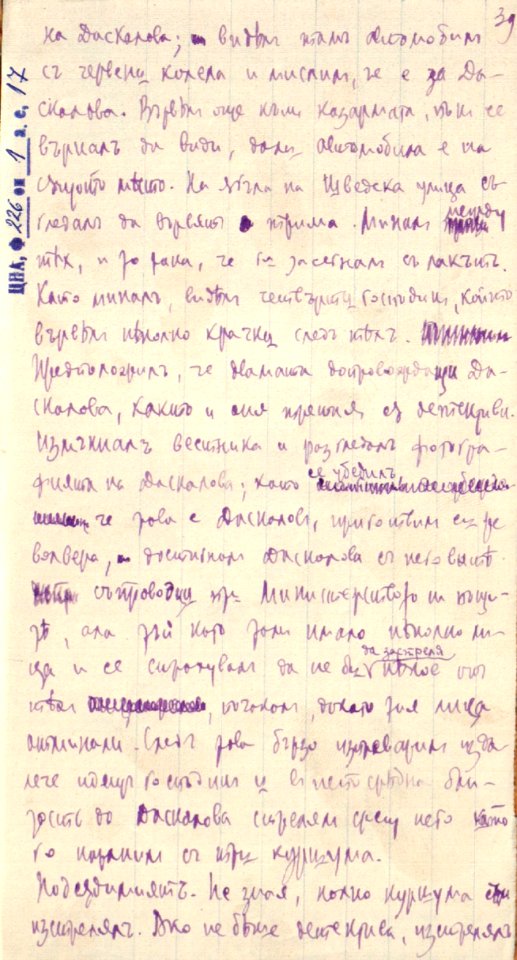 39
ЦПА, ф 226 оп 1 а. е. 17
на Даскалова; видѣлъ тамъ автомобилъ
съ червени колела и мислилъ, че е за Да-
скалова. Вървѣлъ още къмъ казармата, пъкъ се
върналъ да види, дали автомобила е на
същото мѣсто. На ѫгъла на Шведска улица съ-
гледалъ да вървятъ трима. Миналъ между
тѣх, и то така, че го засегналъ съ лакътъ.
Като миналъ, видѣлъ четвърти господинъ, който
вървѣлъ нѣколко крачки следъ тѣхъ.
Предположилъ, че двамата съпровождащи Да-
скалова, както и оня третия са детективи.
Измъкналъ вестника и разгледалъ фотогра-
фията на Даскалова; като се убедилъ
че това е Даскаловъ, приготвилъ си ре
волвера, достигналъ Даскалова съ неговитѣ
съпроводци при Министерството на пощи-
тѣ, ала тъй като там имало нѣколко ли-
ца и се страхувалъ да не би да застреля нѣкое отъ
тѣхъ, почакалъ, докато тия лица
отминали. Следъ това бързо изпреварилъ изда
лече идещи господинъ и в непосрѣдна бли-
зость до Даскалова стрелялъ срещу него като
го повалилъ съ три куршума.
Подсѫдимиятъ. Не зная, колко куршума съм
изстрелялъ. Ако не бѣше детектива, изстрелялъ